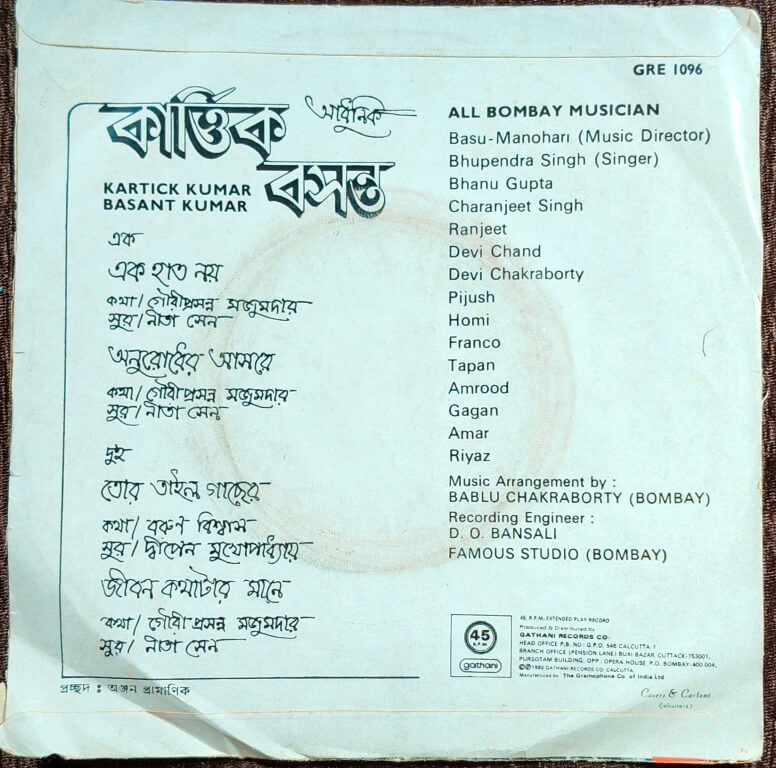 GRE 1096
কার্ত্তিক
আধুনিক
বসন্ত
KARTICK KUMAR
BASANT KUMAR
এক
এক হাত নয়
কথা/ গৌরীপ্রসন্ন মজুমদার
সুর/ নীতা সেন
অনুরোধের আসরে
কথা/ গৌরীপ্রসন্ন মজুমদার
সুর/ নীতা সেন
দুই
তোর তাইল গাছের
কথা/ বরুণ বিশ্বাস
সুর/ দ্বীপেন মুখোপাধ্যায়
জীবন কথাটার মানে
কথা/ গৌরীপ্রসন্ন মজুমদার
সুর/ নীতা সেন
প্রচ্ছদ : অঞ্জন প্রামাণিক
ALL BOMBAY MUSICIAN
Basu-Manohari (Music Director)
Bhupendra Singh (Singer)
Bhanu Gupta
Charanjeet Singh
Ranjeet
Devi Chand
Devi Chakraborty
Pijush
Homi
Franco
Tapan
Amrood
Gagan
Amar
Riyaz
Music Arrangement by :
BABLU CHAKRABORTY (BOMBAY)
Recording Engineer :
D. O. BANSALI
FAMOUS STUDIO (BOMBAY)
45
R.P.M
gathani
45, R.P.M. EXTENDED PLAY RECORD
Produced & Distributed by
GATHANI RECORDS CO.
HEAD OFFICE P.B. NO : G.P.O. 546 CALCUTTA.1
BRANCH OFFICE (PENSION LANE) BUXI BAZAR, CUTTACK-753001,
PURSOTAM BUILDING, OPP : OPERA HOUSE, P.O. BOMBAY-400 004,
©℗1980 GATHANI RECORDS CO, CALCUTTA.
Manufactured by The Gramophone Co. of India Ltd
Covers & Cartons
(Calcutta-6)